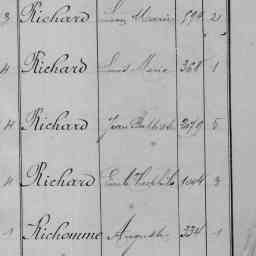 3 Richard Marie 594 21
4 Richard Louis Marie 368 1
4 Richard Jean Baptiste 2079 5
"
4 Richard Emile Théophile 1044 3
"
1 Richomme Auguste 334 1